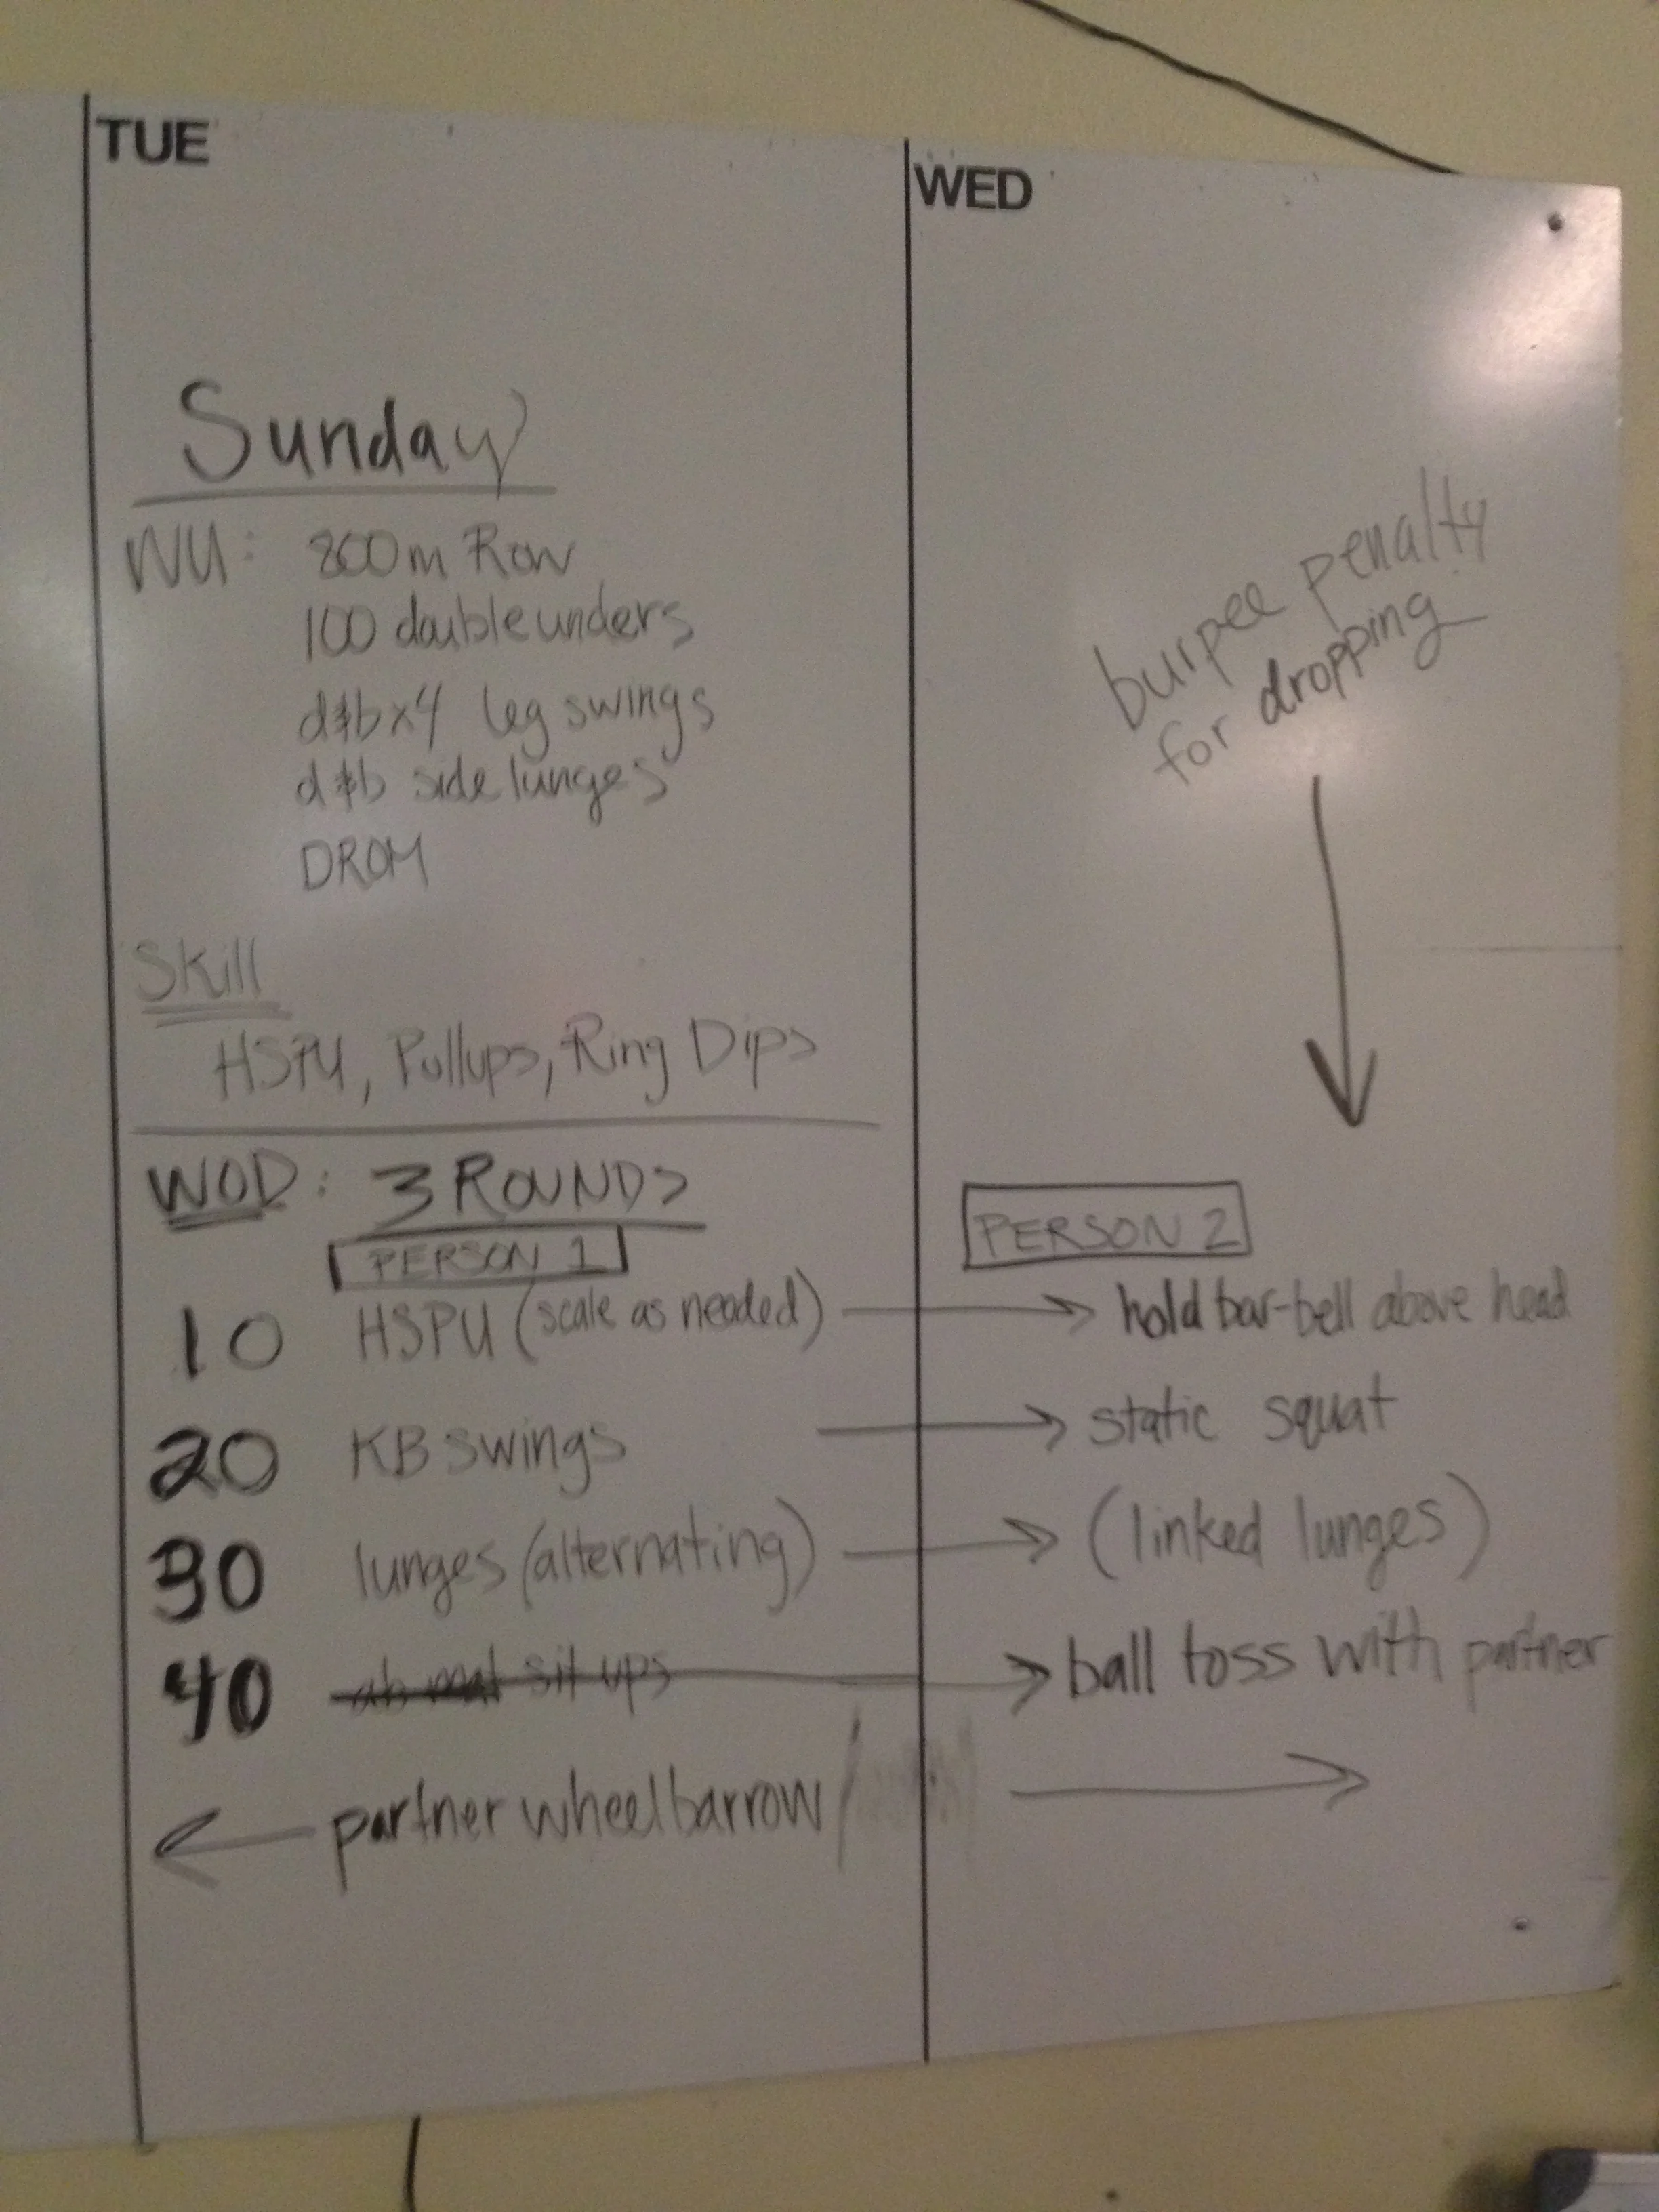 TUE
WED
Sunday
WU: 800m Row
100 double unders
d&b x4 leg swings
d&b side lunges
DROM
burpee penalty
for dropping
Skill
HSPU, Pullups, Ring Dips
WOD: 3 ROUNDS
PERSON 1
PERSON 2
10 HSPU (scale as needed) → hold bar-bell above head
20 KB swings → static squat
30 lunges (alternating) → (linked lunges)
40 ab mat sit ups → ball toss with partner
← partner wheelbarrow →